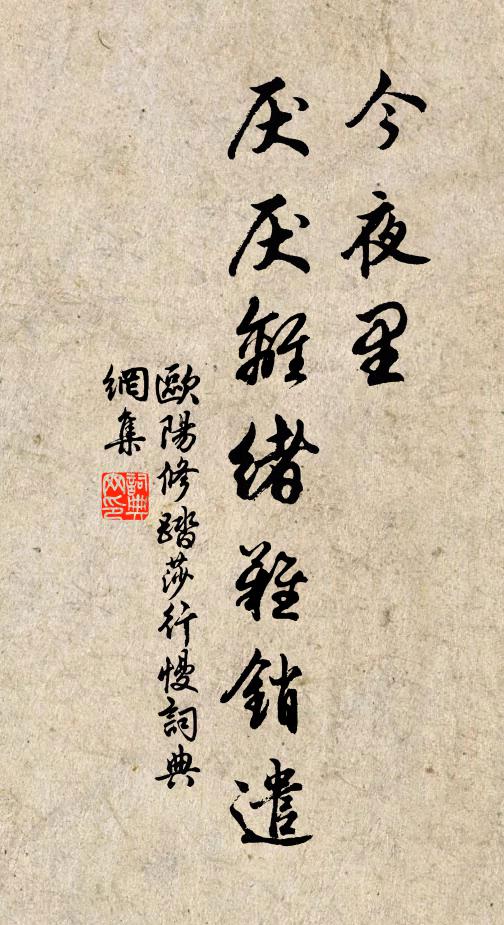 今夜里
厌厌離緒難銷遣
歐陽修踏莎行慢詞典
網集
詞典
网印